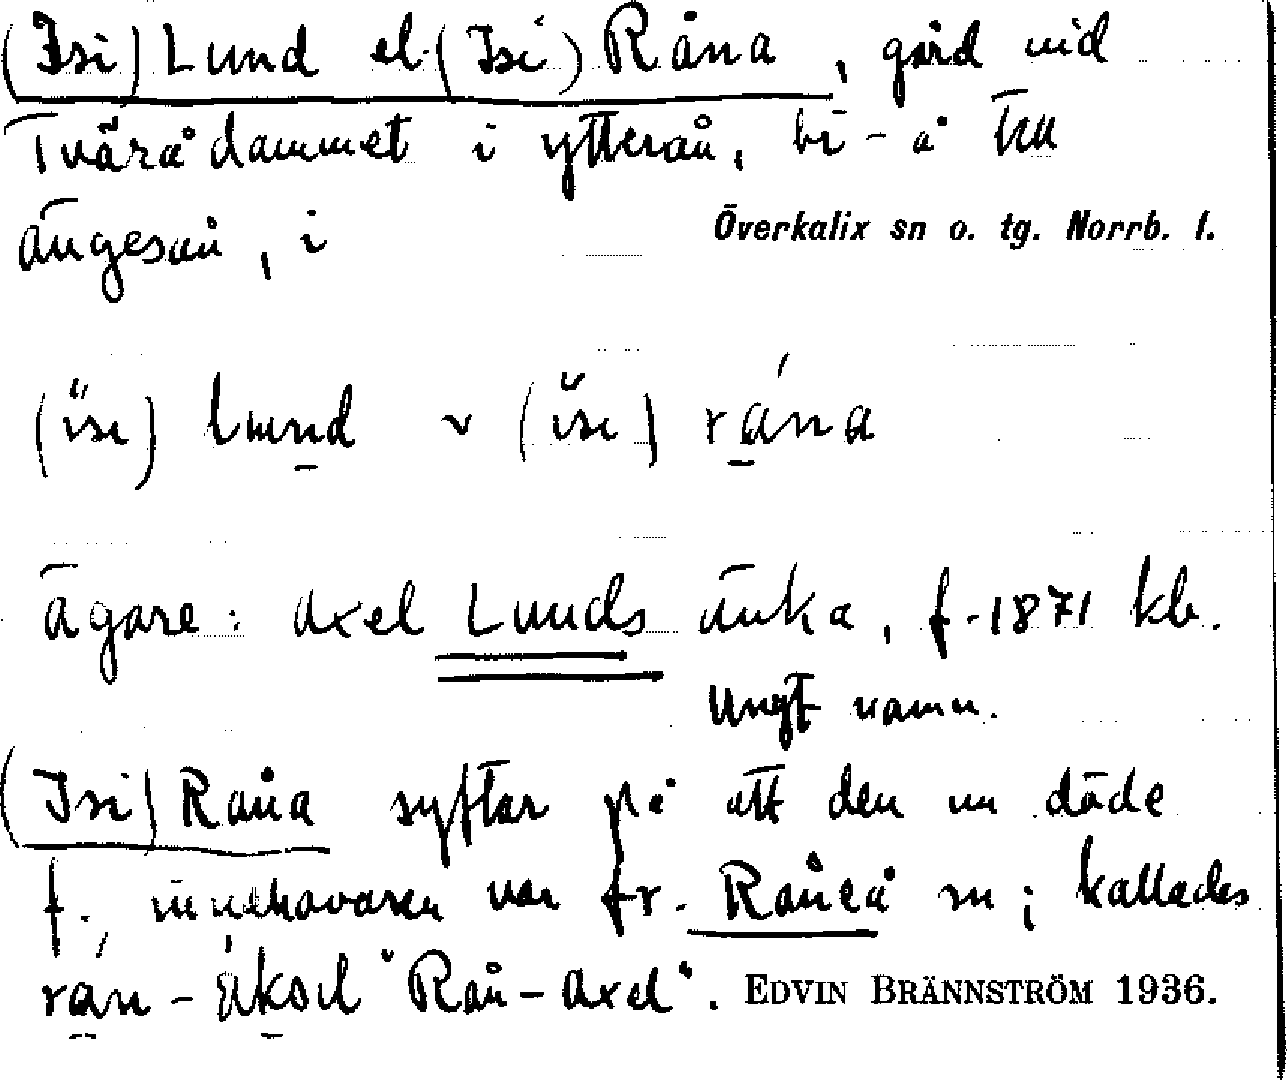 (Isi) Lund el. (Isi) Råna, gård vid
Tvärådammet i ytterån, bi-å till
ängesån, i Överkalix sn o. tg. Norrb. l.
(ise) lund v (ise) råna
ägare: Axel Lunds änka, f. 1871 kb.
Ungt namn.
(Isi) Råna syftar på att den nu döde
f. innehavaren var fr. Råneå sn; kallades
rån-áksel "Rån-Axel". EDVIN BRÄNNSTRÖM 1936.